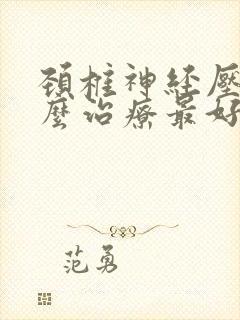 頚椎神経壓
麼治療最好
范勇